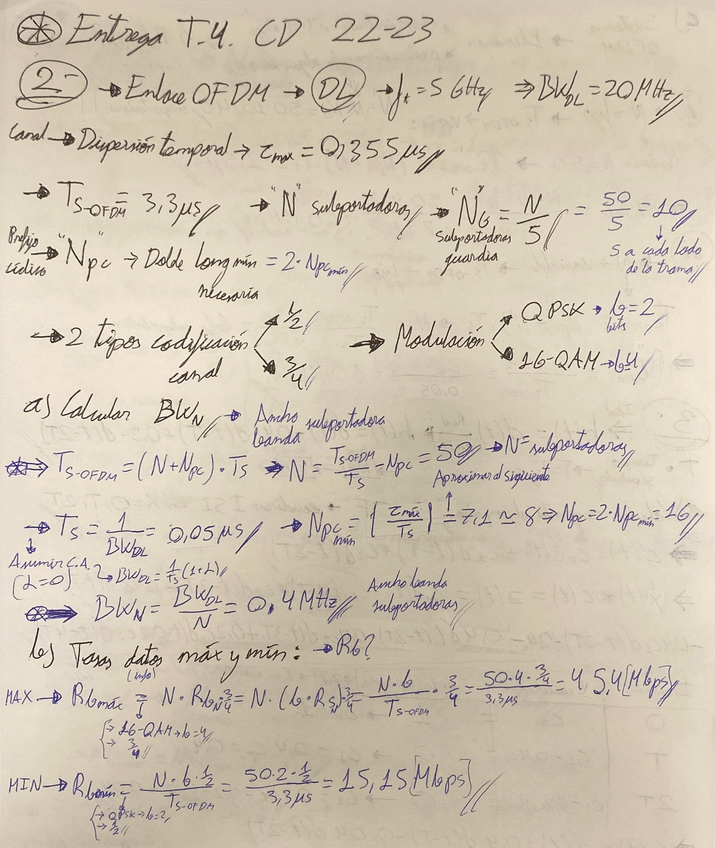 * Entrega T.4. CD 22-23
2- → Enlace OFDM → DL → ft = 5 GHz ⇒ BW_DL = 20 MHz
Canal → Dispersión temporal → τmax = 0,355 μs
→ T_S-OFDM = 3,3 μs → "N" subportadoras → "N_G" = N/5 = 50/5 = 10
Subportadoras guardia
↓ 5 a cada lado de la trama
Prefijo cíclico → "Npc" → Doble long mín necesaria = 2·Npc mín
→ 2 tipos codificación canal 1/2 3/4 → Modulación QPSK → b = 2 bits 16-QAM → b=4
a) Calcular BW_N → Ancho banda subportadora
* ⇒ T_S-OFDM = (N+Npc)·Ts ⇒ N = T_S-OFDM/Ts - Npc = 50 → N = subportadoras
Aproximar al siguiente
→ Ts = 1/BW_DL = 0,05 μs → Npc mín = ⌈τmax/Ts⌉ = 7,1 ≃ 8 ⇒ Npc = 2·Npc mín = 16
Asumir C.A. (α=0) → BW_DL = 1/Ts (1+α)
* ⇒ BW_N = BW_DL/N = 0,4 MHz Ancho banda subportadoras
b) Tasas datos (info) máx y mín: → Rb?
MAX → Rb máx = N·Rb_N·3/4 = N·(b·Rs_N)·3/4 = N·b/T_S-OFDM · 3/4 = 50·4·3/4 / 3,3μs = 45,4 [Mbps]
→ 16-QAM → b=4
→ 3/4
MIN → Rb mín = N·b·1/2 / T_S-OFDM = 50·2·1/2 / 3,3μs = 15,15 [Mbps]
→ QPSK → b=2
→ 1/2